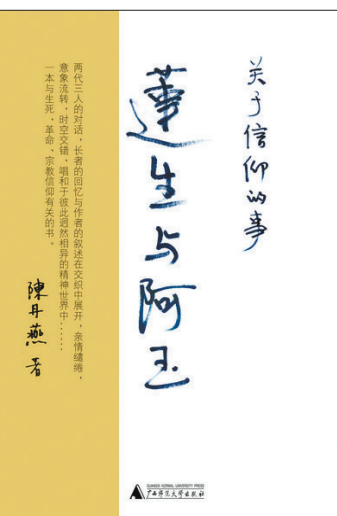 关于信仰的事
莲生与阿玉
两代三人的对话，长者的回忆与作者的叙述在交织中展开，亲情缱绻，
意象流转，时空交错，唱和于彼此迥然相异的精神世界中……
一本与生死、革命、宗教信仰有关的书。
陳丹燕 著
GUANGXI NORMAL UNIVERSITY PRESS
广西师范大学出版社